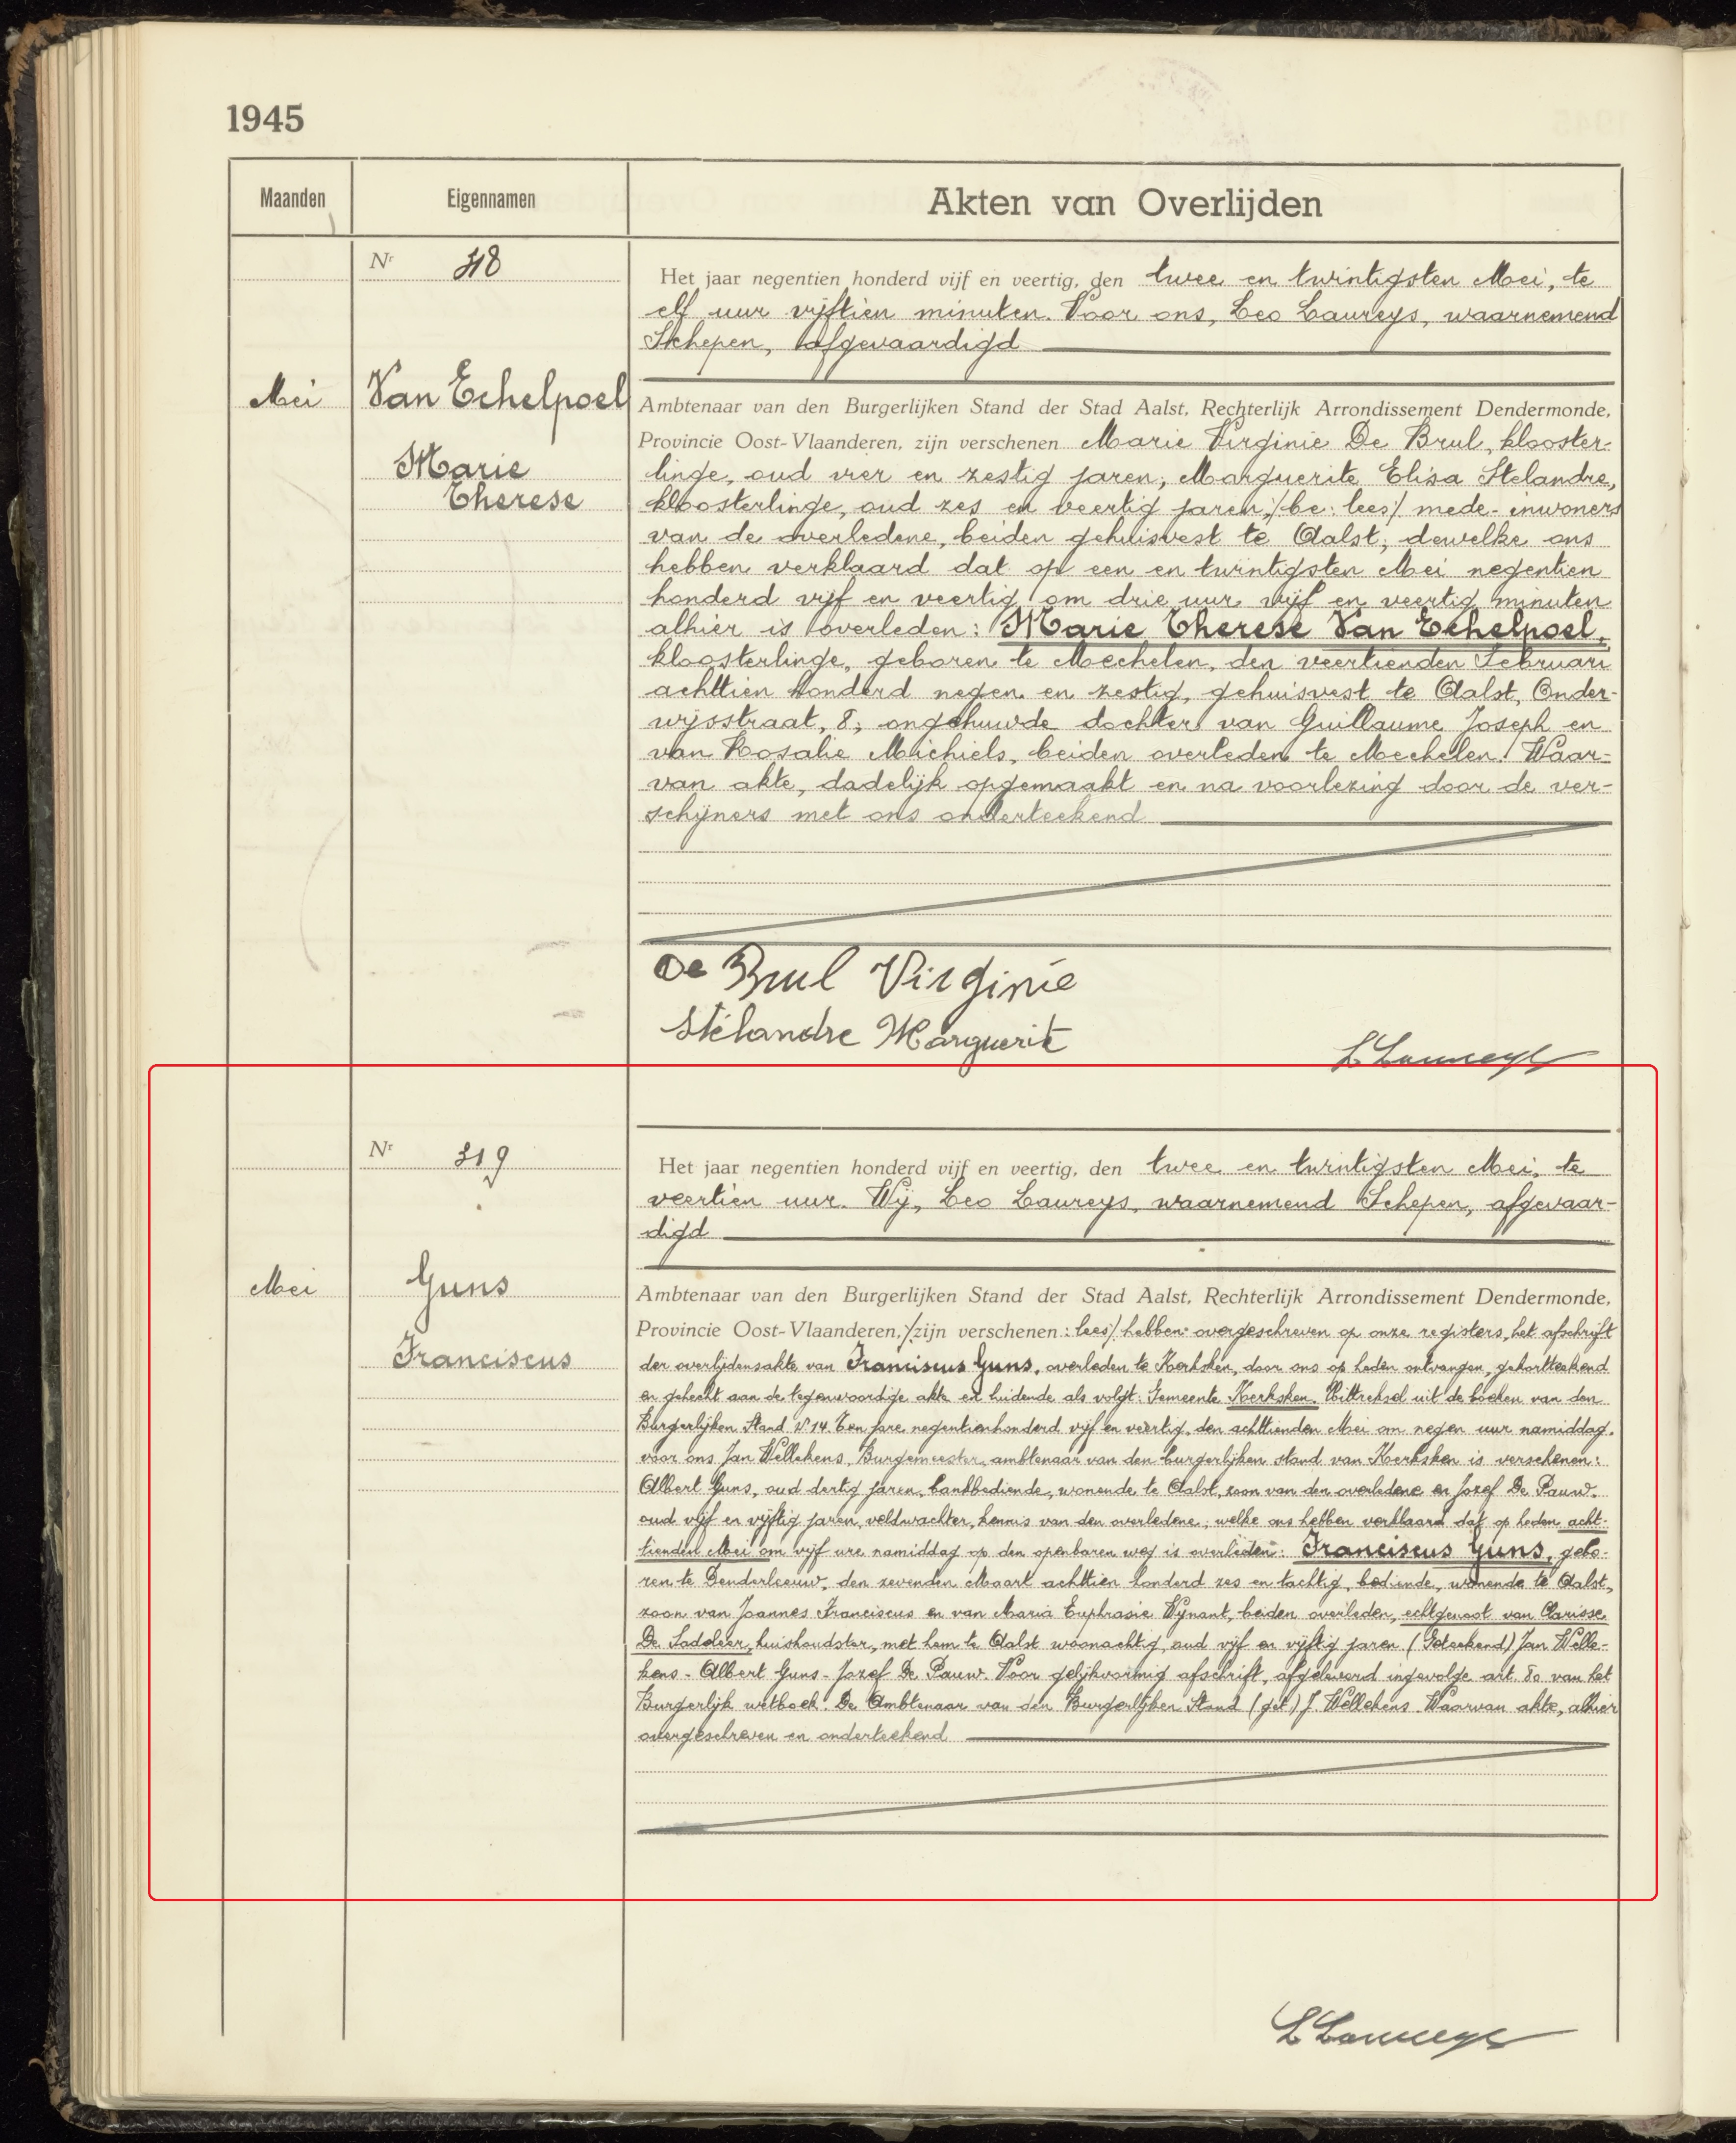 1945
Maanden Eigennamen Akten van Overlijden
Nr 318
Het jaar negentien honderd vijf en veertig, den twee en twintigsten Mei, te
elf uur vijftien minuten. Voor ons, Leo Laureys, waarnemend
Schepen, afgevaardigd
Mei Van Echelpoel
Marie
Therese
Ambtenaar van den Burgerlijken Stand der Stad Aalst, Rechterlijk Arrondissement Dendermonde,
Provincie Oost-Vlaanderen, zijn verschenen Marie Virginie De Brul, klooster-
linge, oud vier en zestig jaren, Marguerite Elisa Stelandre,
kloosterlinge, oud zes en veertig jaren,/be: lees/ mede-inwoners
van de overledene, beiden gehuisvest te Aalst; dewelke ons
hebben verklaard dat op een en twintigsten Mei negentien
honderd vijf en veertig om drie uur vijf en veertig minuten
alhier is overleden: Marie Therese Van Echelpoel,
kloosterlinge, geboren te Mechelen, den veertienden Februari
achttien honderd negen en zestig, gehuisvest te Aalst, Onder-
wijsstraat, 8; ongehuwde dochter van Guillaume Joseph en
van Rosalie Michiels, beiden overleden te Mechelen. Waar-
van akte, dadelijk opgemaakt en na voorlezing door de ver-
schijners met ons onderteekend
De Brul Virginie
Stélandre Marguerite
L Laureys
Nr 319
Het jaar negentien honderd vijf en veertig, den twee en twintigsten Mei, te
veertien uur. Wij, Leo Laureys, waarnemend Schepen, afgevaar-
digd
Mei Guns
Franciscus
Ambtenaar van den Burgerlijken Stand der Stad Aalst, Rechterlijk Arrondissement Dendermonde,
Provincie Oost-Vlaanderen,/zijn verschenen: lees/ hebben overgeschreven op onze registers, het afschrift
der overlijdensakte van Franciscus Guns, overleden te Kerksken, door ons op heden ontvangen, gekortteekend
en gehecht aan de tegenwoordige akte en luidende als volgt: Gemeente Kerksken. Uittreksel uit de boeken van den
Burgerlijken Stand N° 14 Ten jare negentienhonderd vijf en veertig, den achttienden Mei om negen uur namiddag.
voor ons Jan Wellekens, Burgemeester, ambtenaar van den burgerlijken stand van Kerksken is verschenen:
Albert Guns, oud dertig jaren, bankbediende, wonende te Aalst, zoon van den overledene en Jozef De Pauw.
oud vijf en vijftig jaren, veldwachter, kennis van den overledene; welke ons hebben verklaard dat op heden acht-
tienden Mei om vijf ure namiddag op den openbaren weg is overleden: Franciscus Guns, gebo-
ren te Denderleeuw, den zevenden Maart achttien honderd zes en tachtig, bediende, wonende te Aalst,
zoon van Joannes Franciscus en van Maria Euphrasie Wijnant, beiden overleden, echtgenoot van Clarisse
De Sadeleer, huishoudster, met hem te Aalst woonachtig, oud vijf en vijftig jaren (Geteekend) Jan Welle-
kens - Albert Guns - Jozef De Pauw. Voor gelijkvormig afschrift, afgeleverd ingevolge art. 80 van het
Burgerlijk wetboek. De Ambtenaar van den Burgerlijken Stand (get.) J. Wellekens Waarvan akte, alhier
overgeschreven en onderteekend
L Laureys